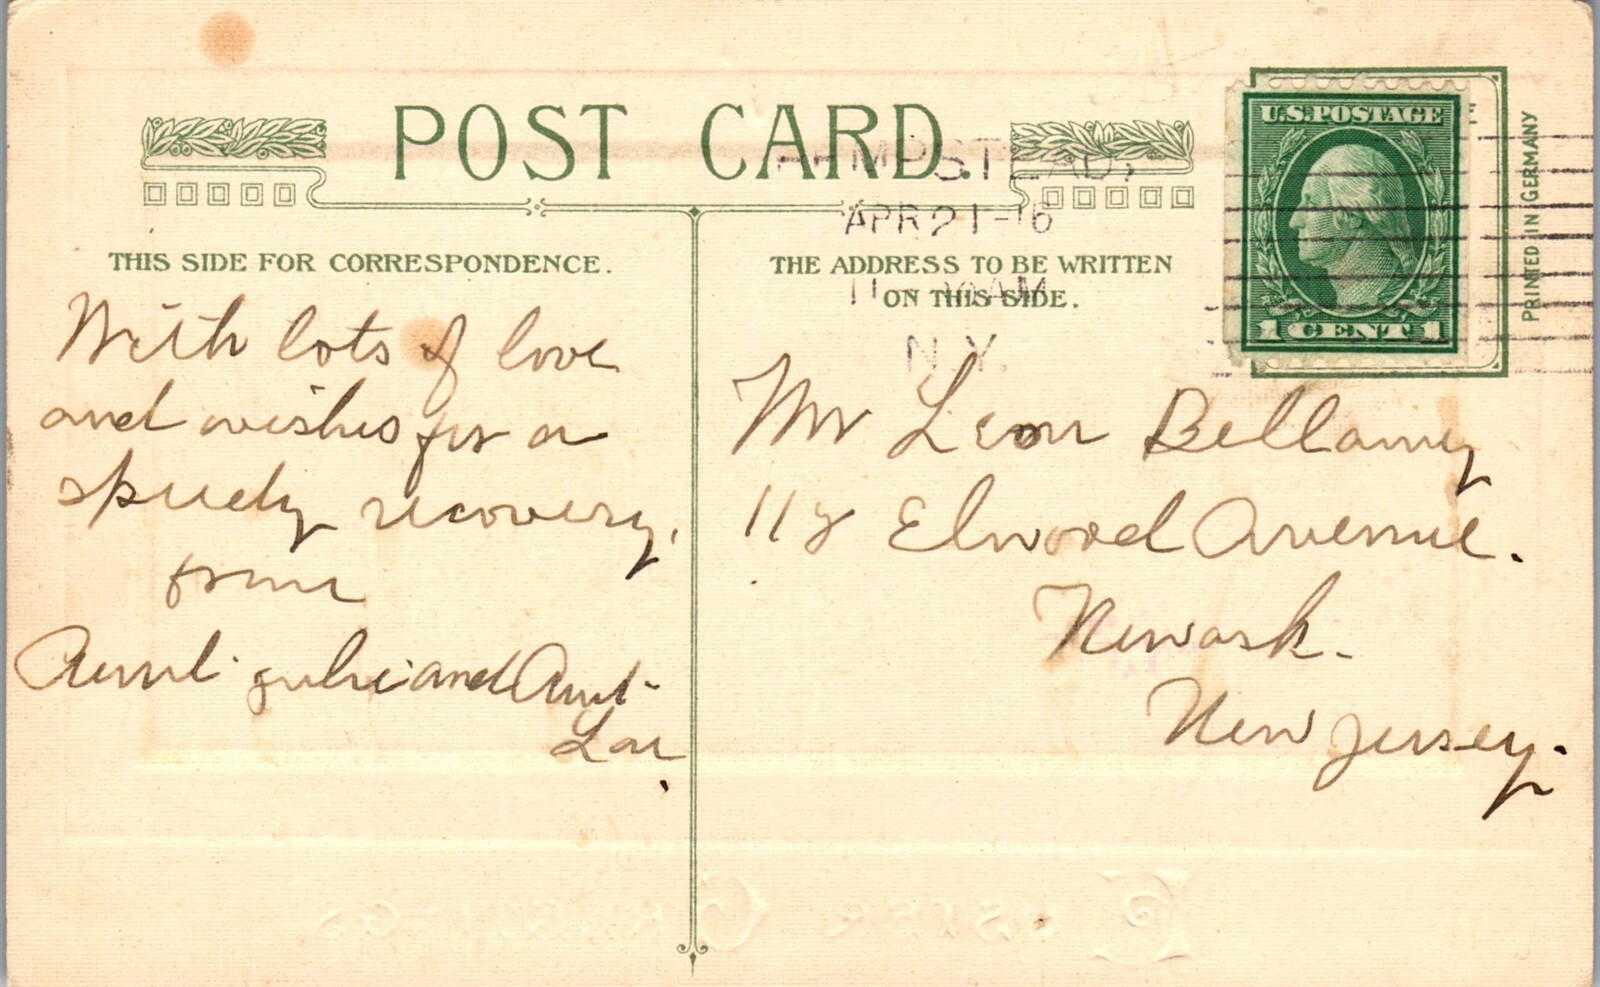 POST CARD.
HEMPSTEAD,
APR 21-16
AM
N.Y.
U.S. POSTAGE
1 CENT 1
PRINTED IN GERMANY
THIS SIDE FOR CORRESPONDENCE.
THE ADDRESS TO BE WRITTEN
ON THIS SIDE.
With lots of love
and wishes for a
speedy recovery,
from
Aunt Julie and Aunt
Lou.
Mr Leon Bellamy
118 Elwood Avenue.
Newark.
New Jersey.
EASTER GREETINGS